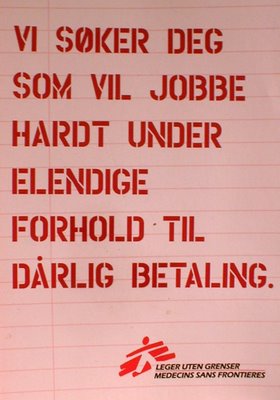 VI SØKER DEG
SOM VIL JOBBE
HARDT UNDER
ELENDIGE
FORHOLD TIL
DÅRLIG BETALING.
LEGER UTEN GRENSER
MEDECINS SANS FRONTIERES